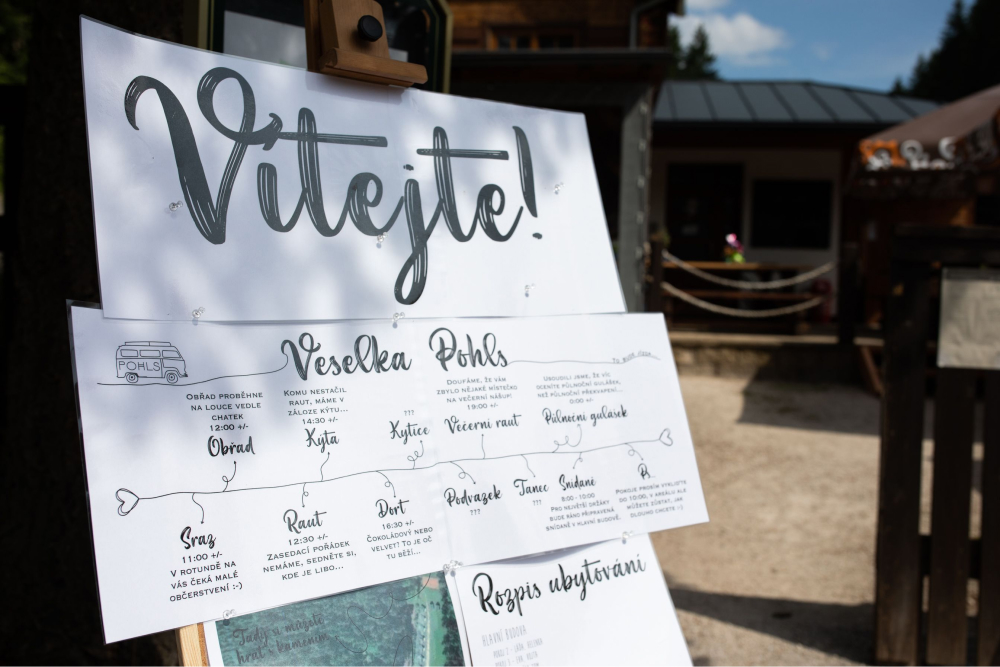 Vítejte!
POHLS
Veselka Pohls
Obřad proběhne
na louce vedle
chatek
12:00 +/-
Obřad
Komu nestačil
raut, máme v
záloze kýtu...
14:30 +/-
Kýta
???
Kytice
Doufáme, že vám
zbylo nějaké místečko
na večerní nášup!
19:00 +/-
Večerní raut
Usoudili jsme, že víc
oceníte půlnoční gulášek,
než půlnoční překvapení...
0:00 +/-
Půlnoční gulášek
Sraz
11:00 +/-
V rotundě na
vás čeká malé
občerstvení :-)
Raut
12:30 +/-
Zasedací pořádek
nemáme, sedněte si,
kde je libo...
Dort
16:30 +/-
Čokoládový nebo
velvet? To je oč
tu běží...
Podvazek
???
Tanec
???
Snídaně
8:00 - 10:00
Pro největší držáky
bude ráno připravená
snídaně v hlavní budově.
Pokoje prosím vykliďte
do 10:00, v areálu ale
můžete zůstat, jak
dlouho chcete :-)
Tady si můžete
hrát s kamením
Rozpis ubytování
HLAVNÍ BUDOVA